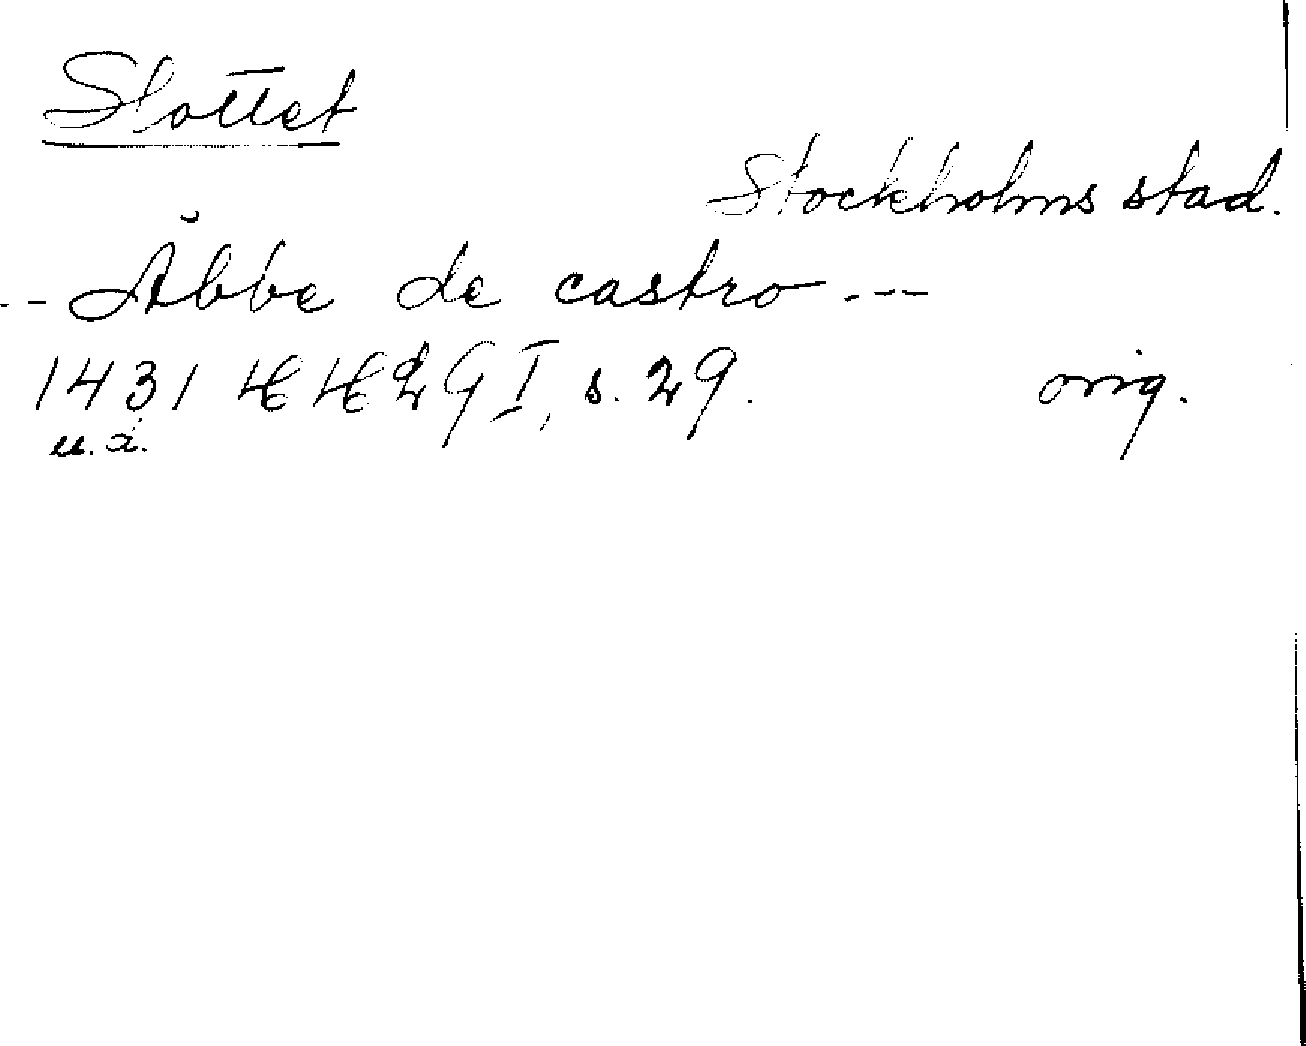 Slottet
Stockholms stad.
-- Åbbe de castro ---
1431 HH 29 I, s. 29. orig.
u. å.